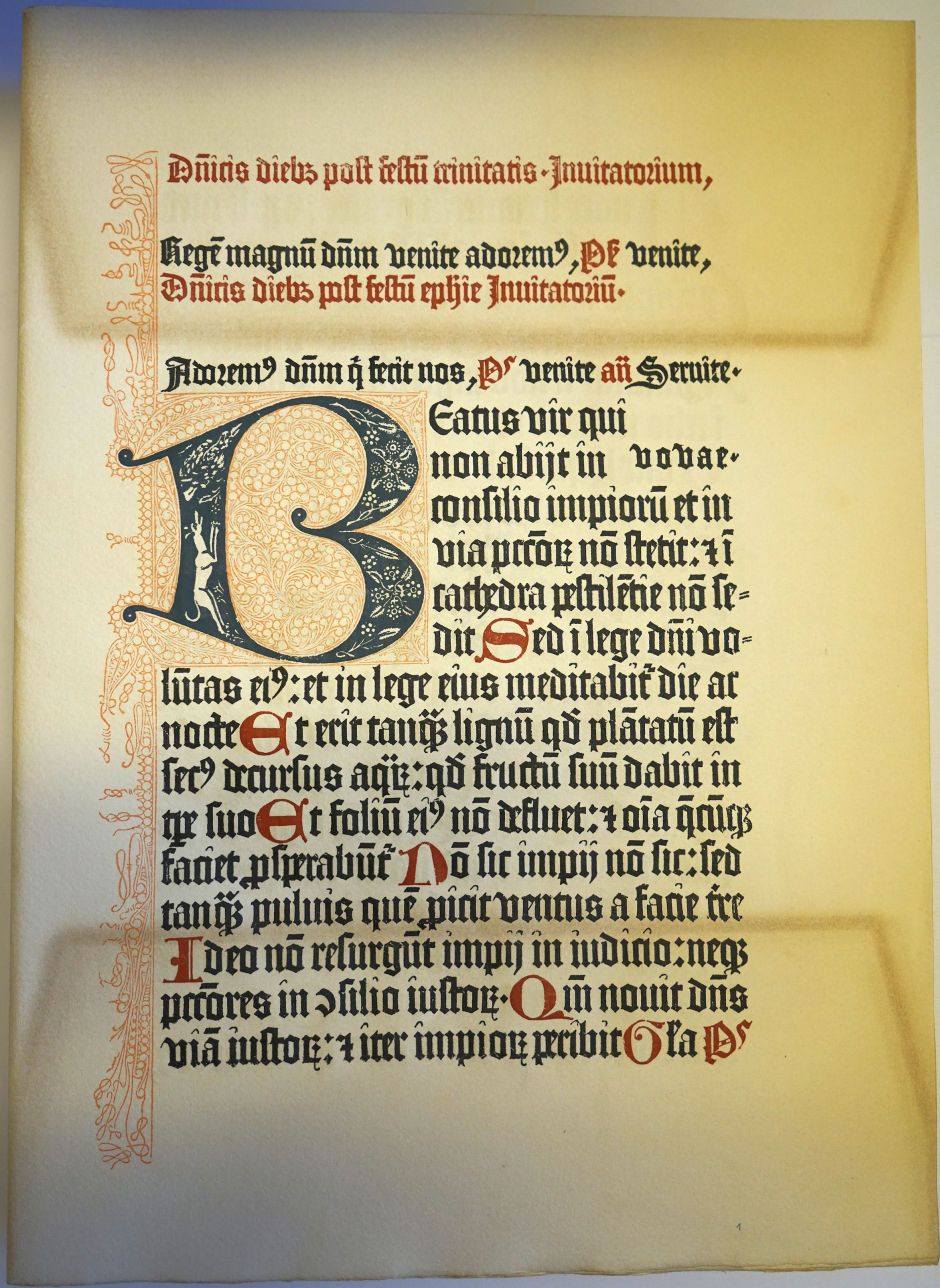 Dn̄icis diebꝫ post festū trinitatis · Inuitatorium,
Regē magnū dn̄m venite adoremꝰ, Ps̄ venite,
Dn̄icis diebꝫ post festū ephie Inuitatoriū·
Adoremꝰ dn̄m q̇ fecit nos, Ps venite an̄ Seruite·
BEatus vir qui
non abijt in vovae·
consilio impiorū et in
via pctōꝝ nō stetit: ⁊ ī
cathedra pestilētie nō se⸗
dit Sed ī lege dn̄i vo⸗
lūtas eiꝰ: et in lege eius meditabit᷑ die ac
nocte Et erit tanqꝫ̄ lignū qd̄ plātatū est
secꝰ decursus aqꝝ̄: qd̄ fructū suū dabit in
tp̄e suo Et foliū eiꝰ nō defluet: ⁊ oīa q̄cūqꝫ
faciet ꝓsperabūt᷑ Nō sic impij nō sic: sed
tanqꝫ̄ puluis quē ꝓicit ventus a facie tr̄e
Ideo nō resurgūt impij in iudicio: neqꝫ
pctōres in ↄsilio iustoꝝ· Qm̄ nouit dn̄s
viā iustoꝝ: ⁊ iter impioꝝ peribit Gl̄a Ps
1